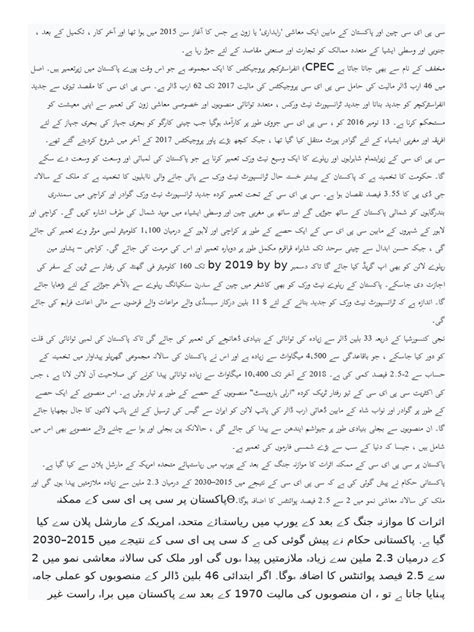 سی پی ای سی چین اور پاکستان کے مابین ایک معاشی 'راہداری' یا زون ہے جس کا آغاز سن 2015 میں ہوا تھا اور آخر کار ، تکمیل کے بعد ،
جنوبی اور وسطی ایشیا کے متعدد ممالک کو تجارت اور صنعتی مقاصد کے لئے جوڑ رہا ہے۔
مخفف کے نام سے بھی جانا جاتا ہے CPEC) انفراسٹرکچر پروجیکٹس کا ایک مجموعہ ہے جو اس وقت پورے پاکستان میں زیرتعمیر ہیں۔ اصل
میں 46 ارب ڈالر مالیت کی حامل سی پی ای سی پروجیکٹس کی مالیت 2017 تک 62 ارب ڈالر ہے۔ سی پی ای سی کا مقصد تیزی سے جدید
انفراسٹرکچر کو جدید بنانا اور جدید ٹرانسپورٹ نیٹ ورکس ، متعدد توانائی منصوبوں اور خصوصی معاشی زون کی تعمیر سے اپنی معیشت کو
مستحکم کرنا ہے۔ 13 نومبر 2016 کو ، سی پی ای سی جزوی طور پر کارآمد ہوگیا جب چینی کارگو کو بحری جہاز کی بحری جہاز کے لئے
افریقہ اور مغربی ایشیاء کے لئے گوادر پورٹ منتقل کیا گیا تھا ، جبکہ کچھ بڑے پاور پروجیکٹس 2017 کے آخر میں شروع کردیئے گئے تھے۔
سی پی ای سی کے زیراہتمام شاہراہوں اور ریلوے کا ایک وسیع نیٹ ورک تعمیر کرنا ہے جو پاکستان کی لمبائی اور وسعت کو وسعت دے سکے
گا۔ حکومت کا تخمینہ ہے کہ پاکستان کے بیشتر خستہ حال ٹرانسپورٹ نیٹ ورک سے پائی جانے والی نااہلیوں کا تخمینہ ہے کہ ملک کے سالانہ
جی ڈی پی کا 3.55 فیصد نقصان ہوا ہے۔ سی پی ای سی کے تحت تعمیر کردہ جدید ٹرانسپورٹ نیٹ ورک گوادر اور کراچی میں سمندری
بندرگاہوں کو شمالی پاکستان کے ساتھ جوڑیں گے اور ساتھ ہی مغربی چین اور وسطی ایشیاء میں مزید شمال کی طرف اشارہ کریں گے۔ کراچی اور
لاہور کے شہروں کے مابین سی پی ای سی کے ایک حصے کے طور پر کراچی اور لاہور کے درمیان 1,100 کلومیٹر لمبی موٹر وے تعمیر کی جائے
گی ، جبکہ حسن ابدال سے چینی سرحد تک شاہراہ قراقرم مکمل طور پر دوبارہ تعمیر اور اس کی مرمت کی جائے گی۔ کراچی – پشاور مین
ریلوے لائن کو بھی اپ گریڈ کیا جائے گا تاکہ دسمبر by 2019 by by تک 160 کلومیٹر فی گھنٹہ کی رفتار سے ٹرین کے سفر کی
اجازت دی جاسکے۔ پاکستان کے ریلوے نیٹ ورک کو بھی کاشغر میں چین کے سدرن سنکیانگ ریلوے سے بالآخر جوڑنے کے لئے بڑھایا جائے
گا۔ اندازہ ہے کہ ٹرانسپورٹ نیٹ ورک کو جدید بنانے کے لئے $ 11 بلین درکار سبسڈی والے مراعات والے قرضوں سے مالی اعانت فراہم کی جائے
گی۔
نجی کنسورشیا کے ذریعہ 33 بلین ڈالر سے زیادہ کی توانائی کے بنیادی ڈھانچے کی تعمیر کی جائے گی تاکہ پاکستان کی لمبی توانائی کی قلت
کو دور کیا جاسکے ، جو باقاعدگی سے 4,500 میگاواٹ سے زیادہ ہے اور اس نے پاکستان کی سالانہ مجموعی گھریلو پیداوار میں تخمینہ کے
حساب سے 2-2.5 فیصد کمی کی ہے۔ 2018 کے آخر تک 10,400 میگاواٹ سے زیادہ توانائی پیدا کرنے کی صلاحیت آن لائن لانا ہے ، جس
کی اکثریت سی پی ای سی کے تیز رفتار ٹریک کردہ "ارلی ہارویسٹ" منصوبوں کے حصے کے طور پر تیار ہوئی ہے۔ اس منصوبے کے ایک حصے
کے طور پر گوادر اور نواب شاہ کے مابین ڈھائی ارب ڈالر کی پائپ لائن کو ایران سے گیس کی ترسیل کے لئے پائپ لائنوں کا جال بچھایا جائے
گا۔ ان منصوبوں سے بجلی بنیادی طور پر جیواشم ایندھن سے پیدا کی جائے گی ، حالانکہ پن بجلی اور ہوا سے چلنے والے منصوبے بھی اس میں
شامل ہیں ، جیسا کہ دنیا کے سب سے بڑے شمسی فارموں کی تعمیر ہے۔
پاکستان پر سی پی ای سی کے ممکنہ اثرات کا موازنہ جنگ کے بعد کے یورپ میں ریاستہائے متحدہ امریکہ کے مارشل پلان سے کیا گیا ہے۔
پاکستانی حکام نے پیش گوئی کی ہے کہ سی پی ای سی کے نتیجے میں 2015–2030 کے درمیان 2.3 ملین سے زیادہ ملازمتیں پیدا ہوں گی اور
ملک کی سالانہ معاشی نمو میں 2 سے 2.5 فیصد پوائنٹس کا اضافہ ہوگا۔Θپاکستان پر سی پی ای سی کے ممکنہ
اثرات کا موازنہ جنگ کے بعد کے یورپ میں ریاستہائے متحدہ امریکہ کے مارشل پلان سے کیا
گیا ہے۔ پاکستانی حکام نے پیش گوئی کی ہے کہ سی پی ای سی کے نتیجے میں 2015–2030
کے درمیان 2.3 ملین سے زیادہ ملازمتیں پیدا ہوں گی اور ملک کی سالانہ معاشی نمو میں 2
سے 2.5 فیصد پوائنٹس کا اضافہ ہوگا۔ اگر ابتدائی 46 بلین ڈالر کے منصوبوں کو عملی جامہ
پہنایا جاتا ہے تو ، ان منصوبوں کی مالیت 1970 کے بعد سے پاکستان میں براہ راست غیر